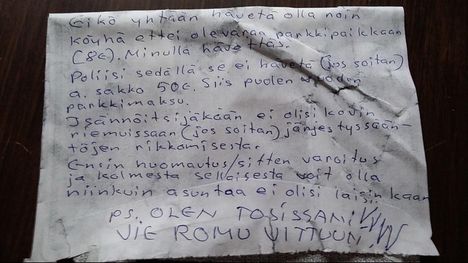 Eikö yhtään hävetä olla noin
köyhä ettei ole varaa parkkipaikkaan
(8€). Minulla hävettäs.
Poliisi sedällä se ei hävetä (jos soitan)
a. sakko 50€. Siis puolen vuoden
parkkimaksu.
Isännöitsijäkään ei olisi kovin
riemuissaan (jos soitan) järjestyssään-
töjen rikkomisesta.
Ensin huomautus/sitten varoitus
ja kolmesta sellaisesta voit olla
niinkuin asuntoa ei olisi laisinkaan
PS. OLEN TOSISSANI
VIE ROMU VITTUUN